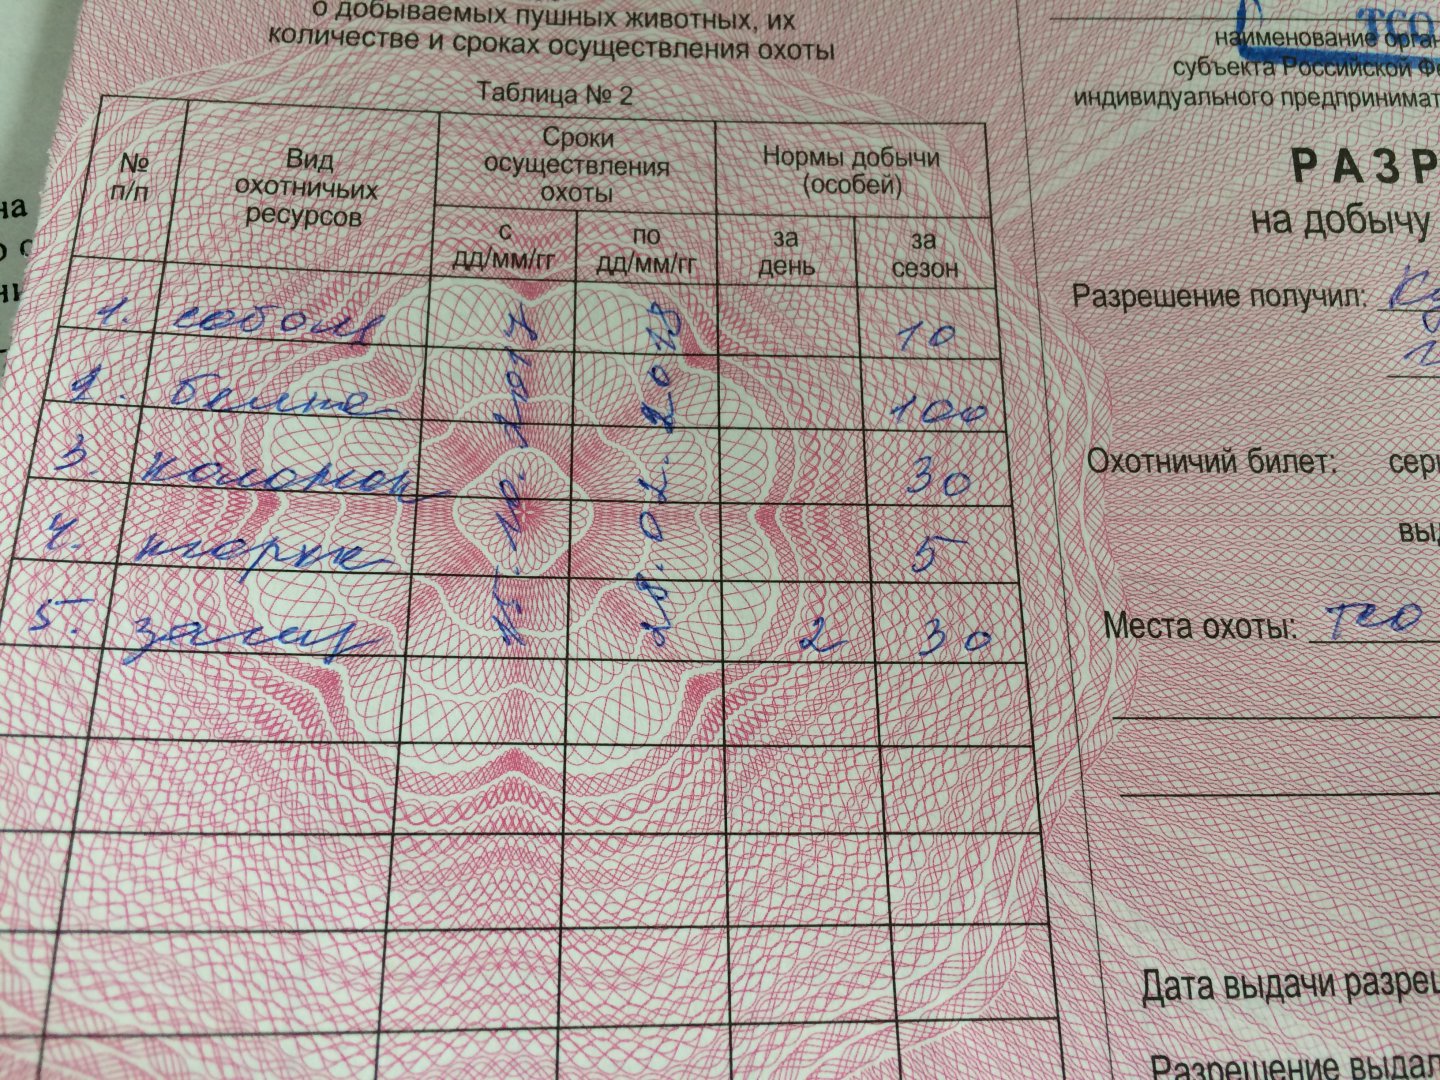 о добываемых пушных животных, их
количестве и сроках осуществления охоты
Таблица № 2
№ п/п
Вид охотничьих ресурсов
Сроки осуществления охоты
Нормы добычи (особей)
с дд/мм/гг
по дд/мм/гг
за день
за сезон
1. соболь 10
2. белка 100
3. колонок 30
4. норка 5
5. заяц 2 30
15.10.2017
28.02.2018
ТСО
наименование орган
субъекта Российской Фе
индивидуального предпринимат
РАЗР
на добычу
Разрешение получил:
Охотничий билет: сери
выд
Места охоты: ТСО
Дата выдачи разреш
Разрешение выдал
на